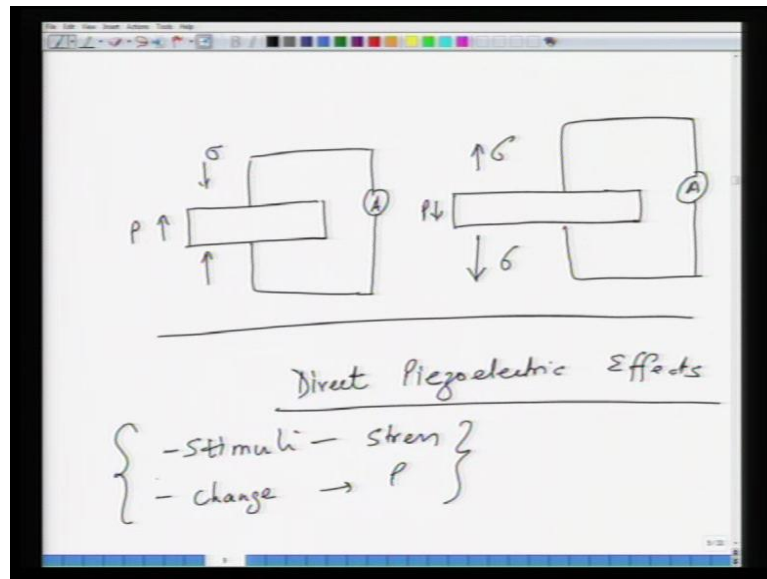 File Edit View Insert Actions Tools Help
σ
P ↑
A
σ
P ↓
A
σ
Direct Piezoelectric Effects
- Stimuli - Stress
- Change → P